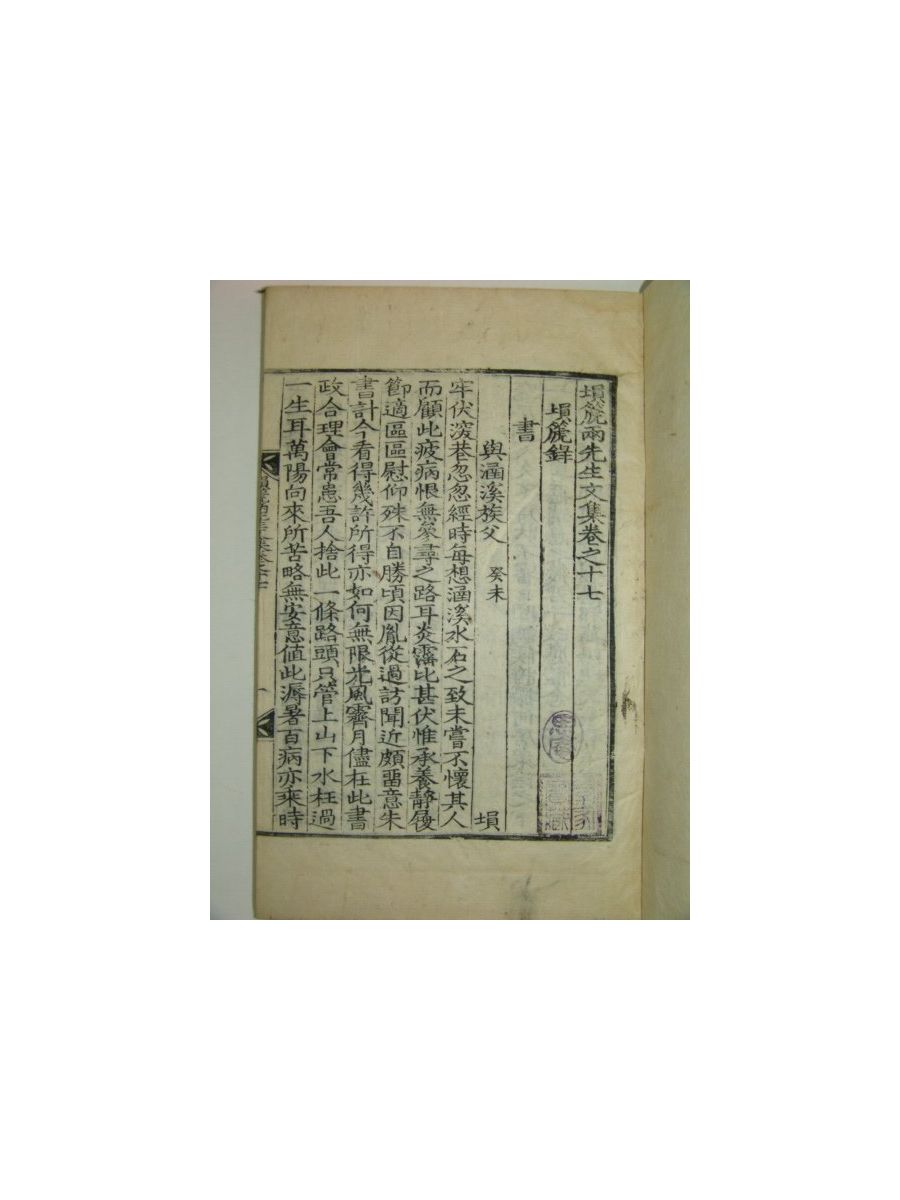 塤篪兩先生文集卷之十七
塤篪錄
書
與涵溪族父 癸未 塤
牢伏深巷忽忽經時每想涵溪水石之致未嘗不懷其人
而顧此疲病恨無象尋之路耳炎霱比甚伏惟承養靜履
節適區區慰仰殊不自勝頃因胤從過訪聞近頗留意朱
書計今看得幾許所得亦如何無限光風霽月儘在此書
政合理會常患吾人捨此一條路頭只管上山下水枉過
一生耳萬陽向來所苦略無安意値此溽暑百病亦乘時